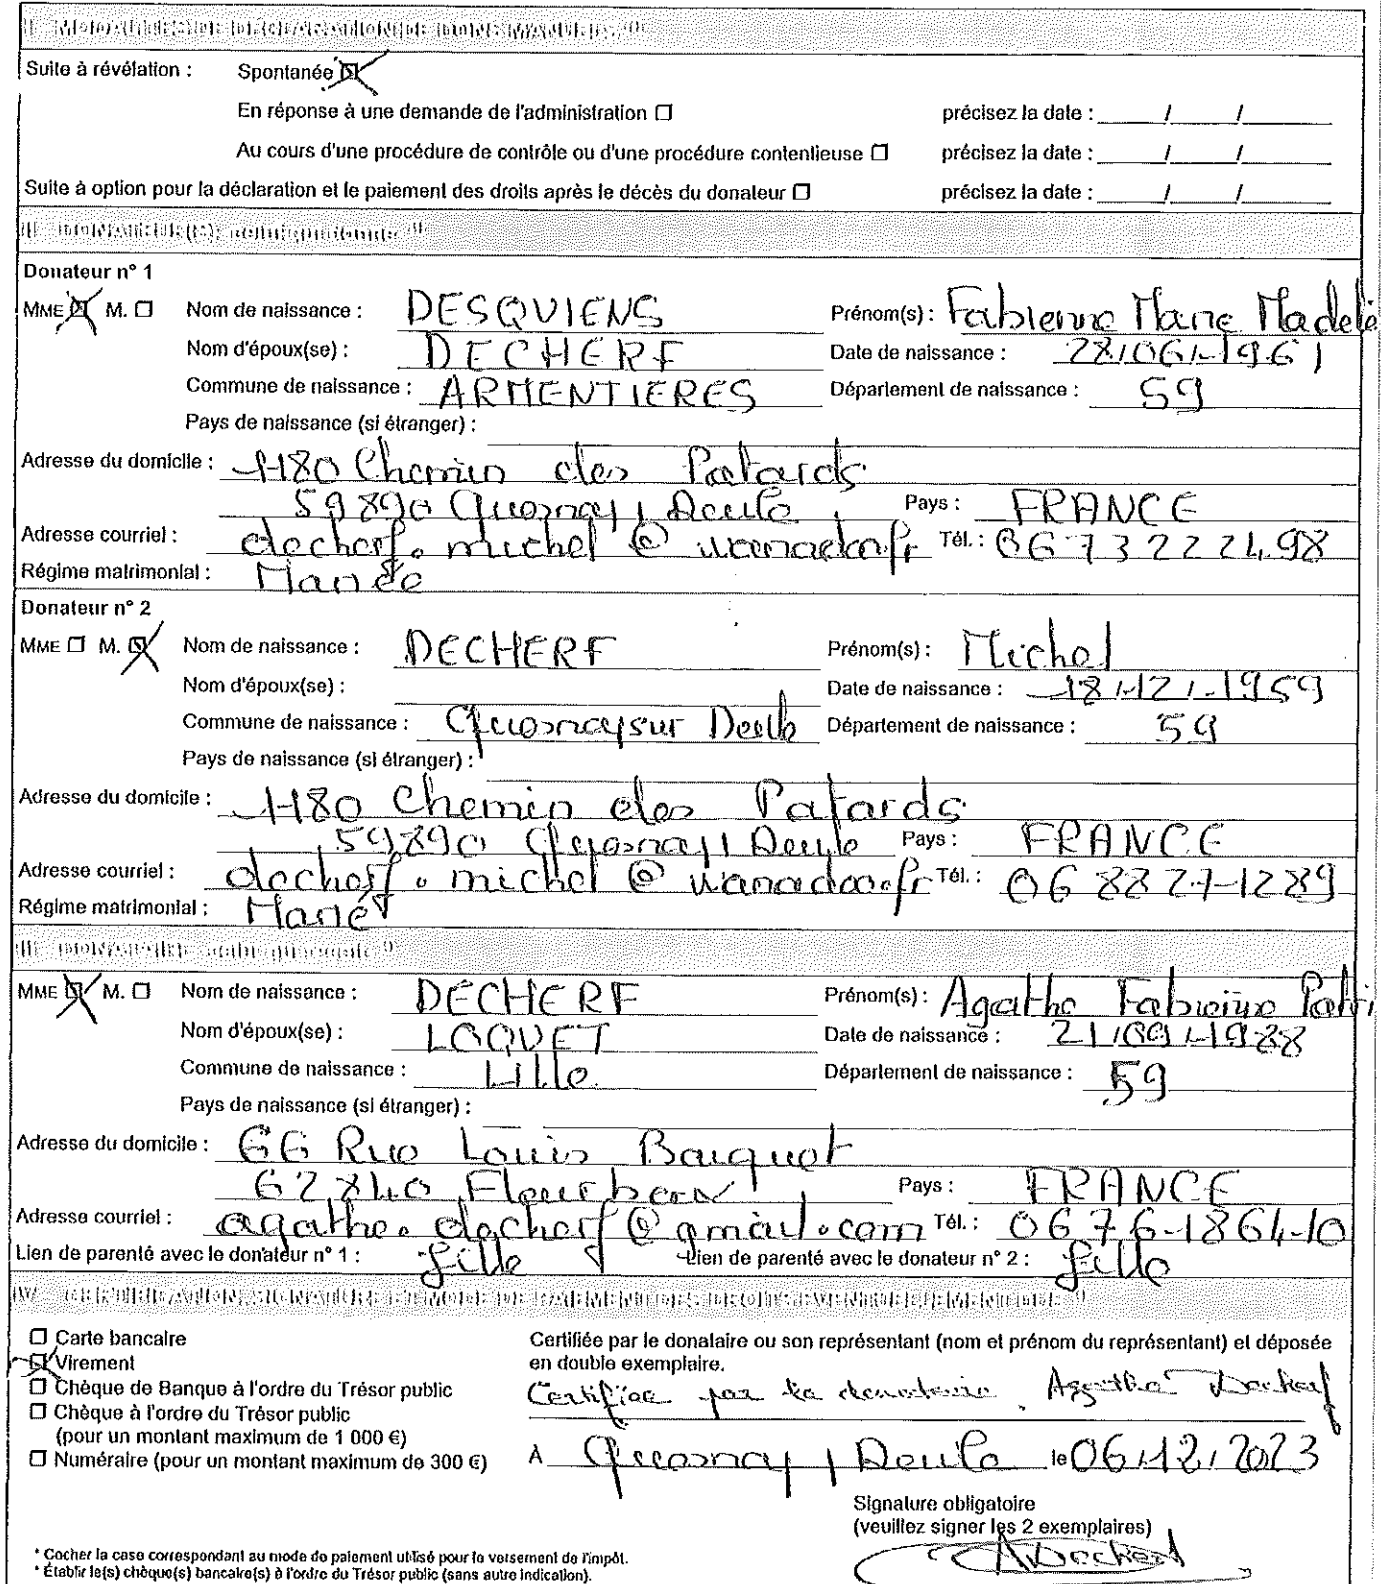 I MODALITES DE DECLARATION DE DONS MANUELS
Suite à révélation : Spontanée ☒
En réponse à une demande de l'administration ☐ précisez la date : / /
Au cours d'une procédure de contrôle ou d'une procédure contentieuse ☐ précisez la date : / /
Suite à option pour la déclaration et le paiement des droits après le décès du donateur ☐ précisez la date : / /
II DONATEUR(S)
Donateur n° 1
MME ☒ M. ☐ Nom de naissance : DESQUIENS Prénom(s) : Fabienne Marie Madele
Nom d'époux(se) : DECHERF Date de naissance : 28/06/1961
Commune de naissance : ARMENTIERES Département de naissance : 59
Pays de naissance (si étranger) :
Adresse du domicile : 1180 Chemin des Patards
59890 Quesnoy / Deule Pays : FRANCE
Adresse courriel : decherf.michel@wanadoo.fr Tél. : 06 73 22 24 98
Régime matrimonial : Mariée
Donateur n° 2
MME ☐ M. ☒ Nom de naissance : DECHERF Prénom(s) : Michel
Nom d'époux(se) : Date de naissance : 18/12/1959
Commune de naissance : Quesnoy sur Deule Département de naissance : 59
Pays de naissance (si étranger) :
Adresse du domicile : 1180 Chemin des Patards
59890 Quesnoy / Deule Pays : FRANCE
Adresse courriel : decherf.michel@wanadoo.fr Tél. : 06 88 27 12 89
Régime matrimonial : Marié
III DONATAIRE
MME ☒ M. ☐ Nom de naissance : DECHERF Prénom(s) : Agathe Fabienne Patri
Nom d'époux(se) : LOQUET Date de naissance : 21/09/1988
Commune de naissance : Lille Département de naissance : 59
Pays de naissance (si étranger) :
Adresse du domicile : 66 Rue Louis Bouquet
62840 Fleurbaix Pays : FRANCE
Adresse courriel : agathe.decherf@gmail.com Tél. : 06 76 18 64 10
Lien de parenté avec le donateur n° 1 : fille Lien de parenté avec le donateur n° 2 : fille
IV CERTIFICATION, SIGNATURE ET MODE DE PAIEMENT DES DROITS EVENTUELLEMENT DUS
☐ Carte bancaire Certifiée par le donataire ou son représentant (nom et prénom du représentant) et déposée
☒ Virement en double exemplaire.
☐ Chèque de Banque à l'ordre du Trésor public Certifiée par la donataire Agathe Decherf
☐ Chèque à l'ordre du Trésor public
(pour un montant maximum de 1 000 €)
☐ Numéraire (pour un montant maximum de 300 €) A Quesnoy / Deule le 06/12/2023
Signature obligatoire
(veuillez signer les 2 exemplaires)
ADecherf
* Cocher la case correspondant au mode de paiement utilisé pour le versement de l'impôt.
* Établir le(s) chèque(s) bancaire(s) à l'ordre du Trésor public (sans autre indication).